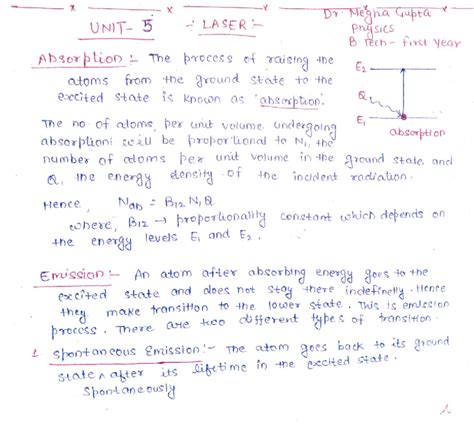 Dr. Megha Gupta
UNIT- 5 -: LASER :-
Physics
B Tech - first Year
Absorption :- The process of raising the
atoms from the ground state to the
excited state is known as 'absorption'.
E2
Q
E1
absorption
The no of atoms, per unit volume undergoing
absorption will be proportional to N1, the
number of atoms per unit volume in the ground state and
Q, the energy density of the incident radiation.
Hence, Nab = B12 N1 Q
where, B12 → proportionality constant which depends on
the energy levels E1 and E2.
Emission :- An atom after absorbing energy goes to the
excited state and does not stay there indefinelly. Hence
they make transition to the lower state. This is emission
process. There are two different types of transition.
1 Spontaneous Emission :- The atom goes back to its ground
state ^ after its lifetime in the excited state.
Spontaneously